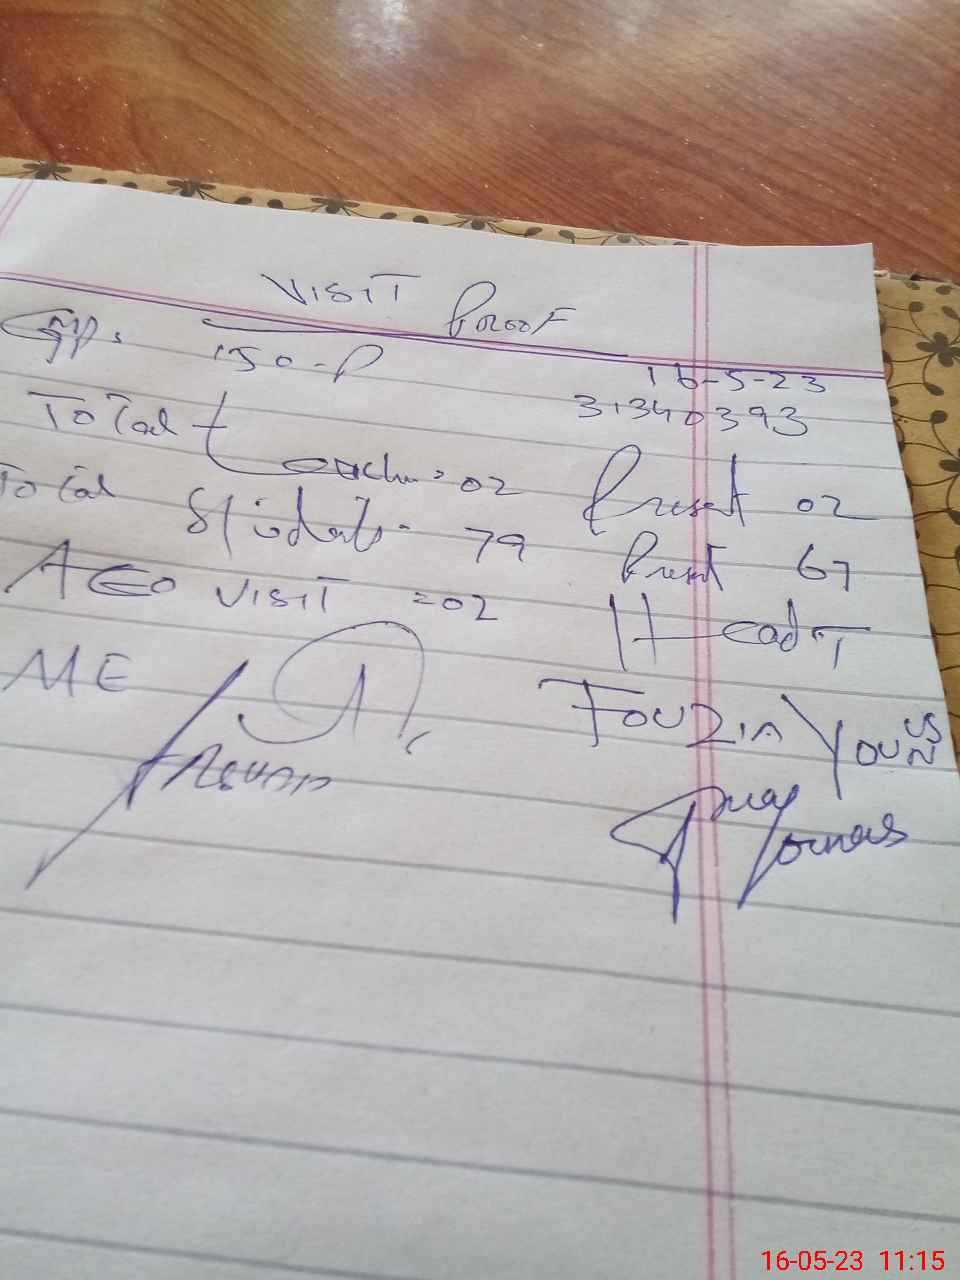 VISIT Proof
GPS. 150-P 16-5-23
31340393
Total teacher = 02 Present 02
Total Students - 79 Present 67
AEO VISIT = 02 Head T
ME FOUZIA YOUNUS
Younas
16-05-23 11:15